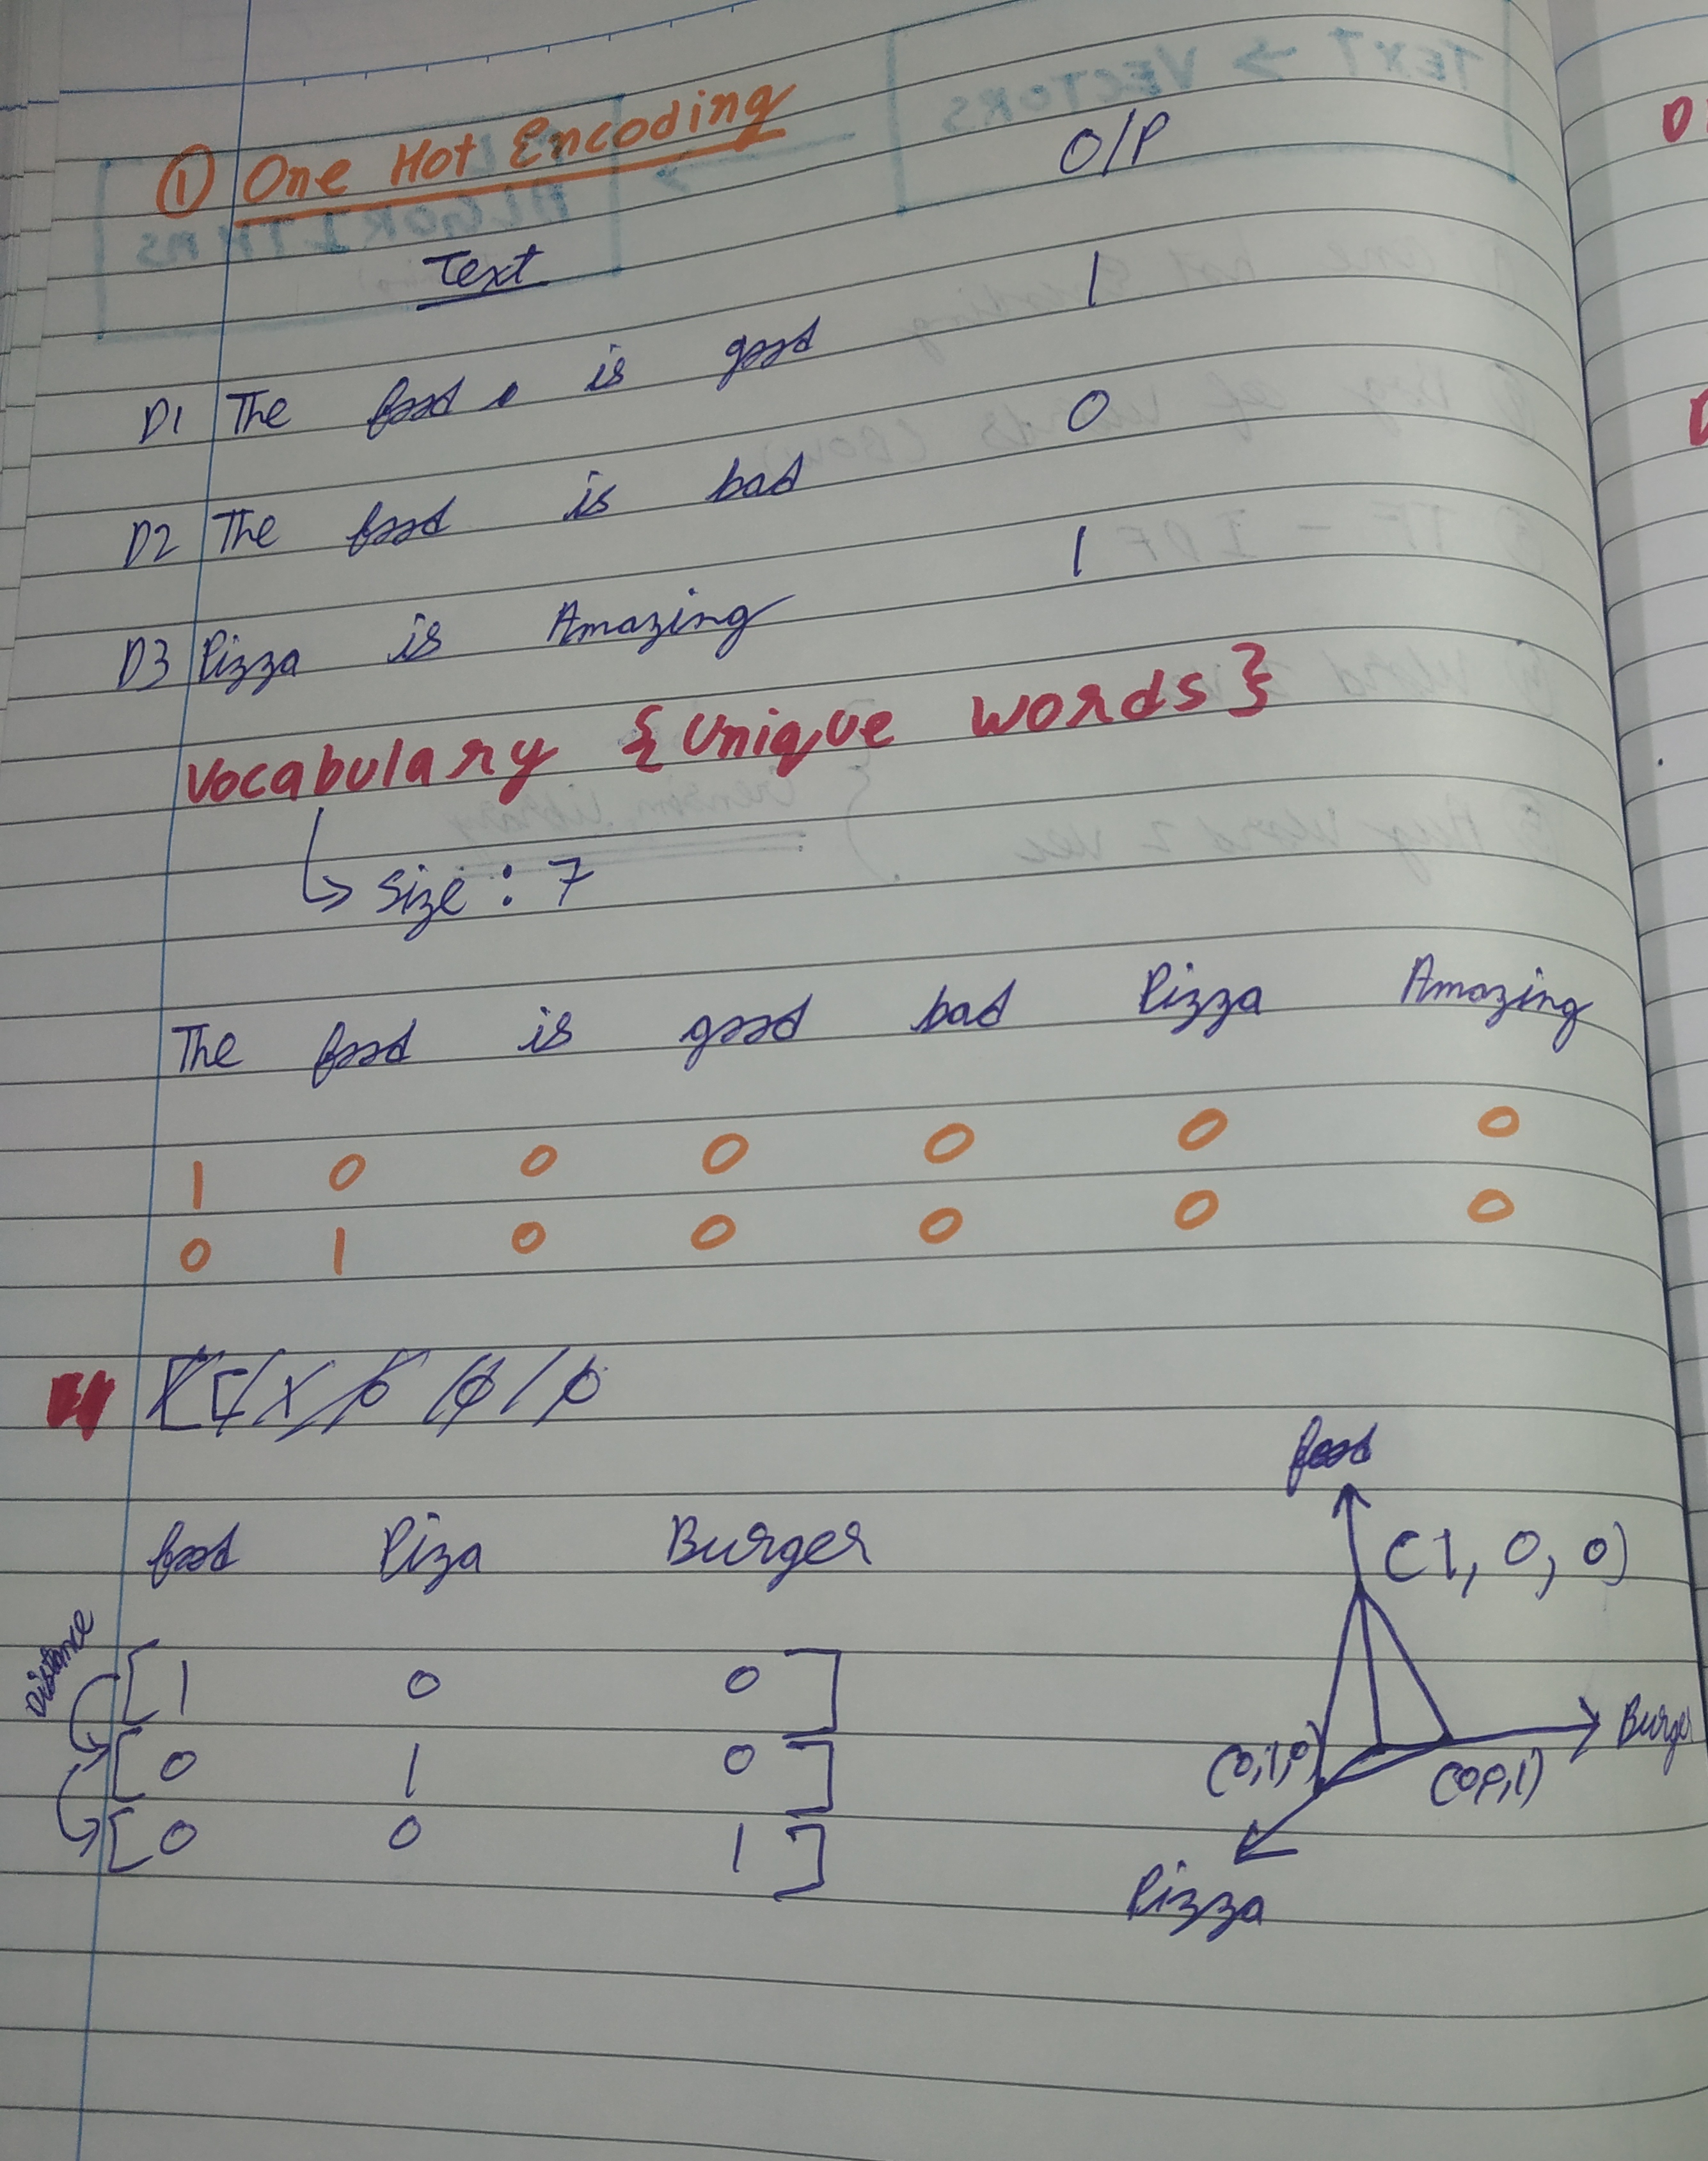 ① One Hot Encoding
Text O/P
D1 The food is good 1
D2 The food is bad 0
D3 Pizza is Amazing 1
Vocabulary {Unique words}
↳ Size : 7
The food is good bad Pizza Amazing
1 0 0 0 0 0 0
0 1 0 0 0 0 0
food Piza Burger
Distance
[1 0 0]
[0 1 0]
[0 0 1]
food
(1, 0, 0)
Burger
(0,1,0)
(0,0,1)
Pizza